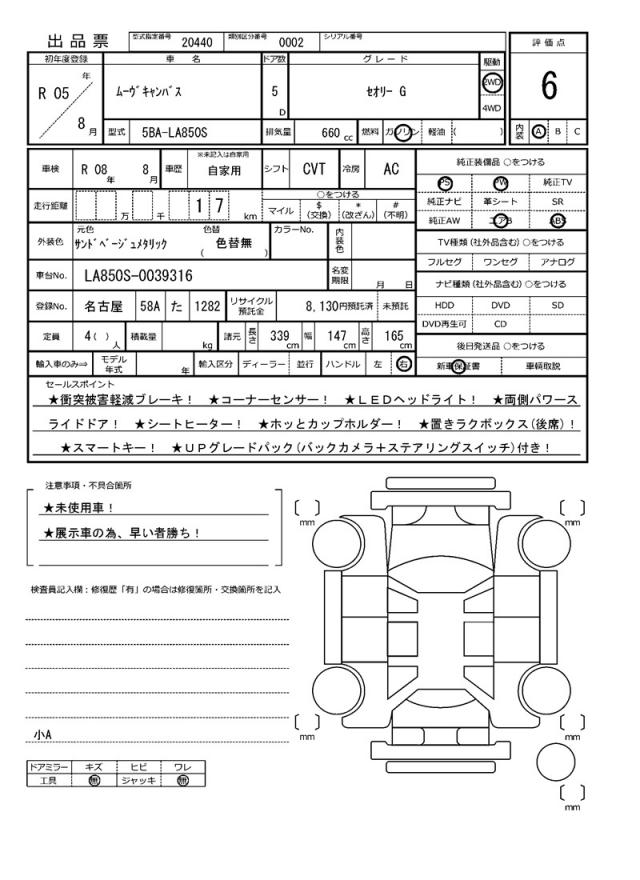 出品票 型式指定番号 20440 類別区分番号 0002 シリアル番号
評価点
6
内装 A B C
初年度登録 車名 ドア数 グレード 駆動
R 05 年 8 月 ムーヴキャンバス 5 D セオリー G 2WD 4WD
型式 5BA-LA850S 排気量 660 cc 燃料 ガソリン 軽油 ( )
車検 R 08 年 8 月 車歴 ※未記入は自家用 自家用 シフト CVT 冷房 AC
走行距離 万 千 1 7 km ○をつける
マイル $ (交換) * (改ざん) # (不明)
外装色 元色 サンドベージュメタリック 色替 ( 色替無 ) カラーNo. 内装色
車台No. LA850S-0039316 名変期限 月 日
登録No. 名古屋 58A た 1282 リサイクル預託金 8,130円預託済 未預託
定員 4 ( ) 人 積載量 kg 諸元 長さ 339 cm 幅 147 cm 高さ 165 cm
輸入車のみ⇒ モデル年式 年 輸入区分 ディーラー 並行 ハンドル 左 右
純正装備品 ○をつける
PS PW 純正TV
純正ナビ 革シート SR
純正AW エアB ABS
TV種類 (社外品含む) ○をつける
フルセグ ワンセグ アナログ
ナビ種類 (社外品含む) ○をつける
HDD DVD SD
DVD再生可 CD
後日発送品 ○をつける
新車保証書 車輌取説
セールスポイント
★衝突被害軽減ブレーキ！ ★コーナーセンサー！ ★LEDヘッドライト！ ★両側パワース
ライドドア！ ★シートヒーター！ ★ホッとカップホルダー！ ★置きラクボックス(後席)！
★スマートキー！ ★UPグレードパック(バックカメラ＋ステアリングスイッチ)付き！
注意事項・不具合箇所
★未使用車！
★展示車の為、早い者勝ち！
検査員記入欄：修復歴「有」の場合は修復箇所・交換箇所を記入
小A
ドアミラー キズ ヒビ ワレ
工具 無 ジャッキ 無
[ ] mm
[ ] mm
[ ] mm
[ ] mm
[ ] mm